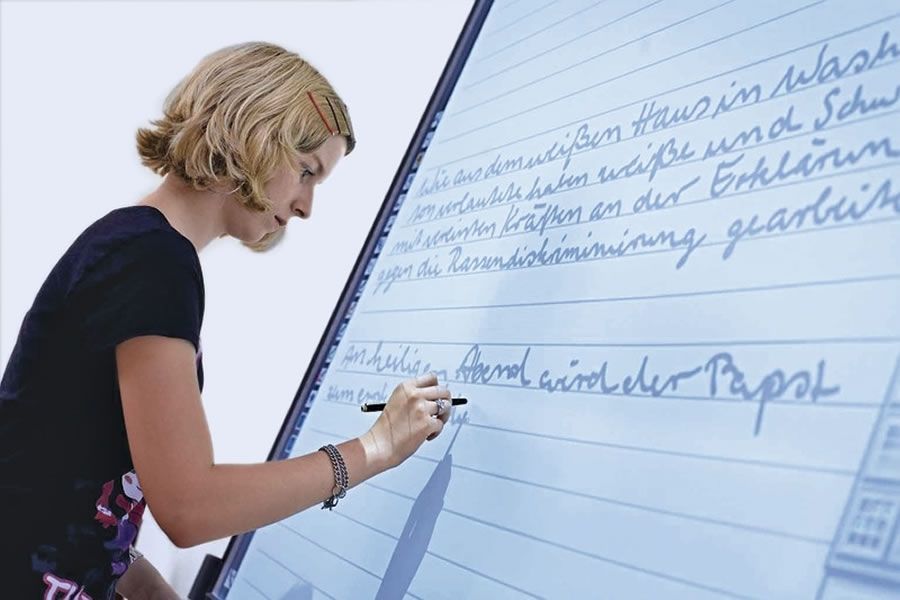 wie aus dem weißen Haus in Wash
ton verlautete haben weiße und Schw
mit vereinten Kräften an der Erklärun
gegen die Rassendiskriminierung gearbeite
Am heiligen Abend wird der Papst
zum erst